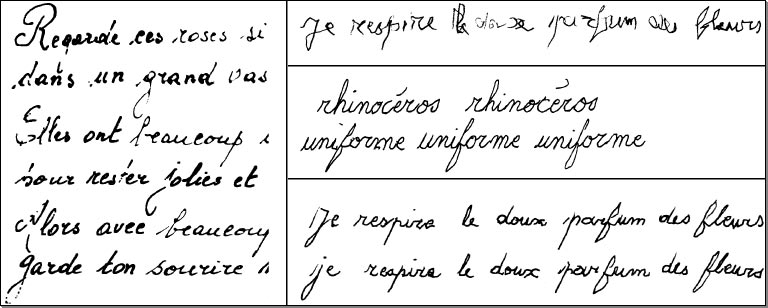 Regarde ces roses si
dans un grand vas
Elles ont beaucoup
pour rester jolies et
Alors avec beaucoup
garde ton sourire
Je respire le doux parfum des fleurs
rhinocéros rhinocéros
uniforme uniforme uniforme
Je respire le doux parfum des fleurs
je respire le doux parfum des fleurs